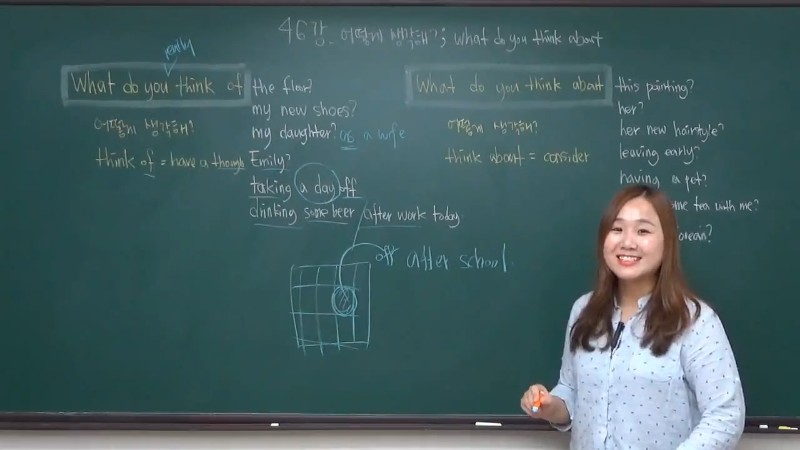 46강. 어떻게 생각해?; what do you think about
really
What do you think of
the floor?
my new shoes?
my daughter? as a wife
Emily?
taking a day off
drinking some beer after work today.
어떻게 생각해?
think of = have a though
off after school.
What do you think about
this painting?
her?
her new hairstyle?
leaving early?
having a pet?
me tea with me?
어떻게 생각해?
think about = consider